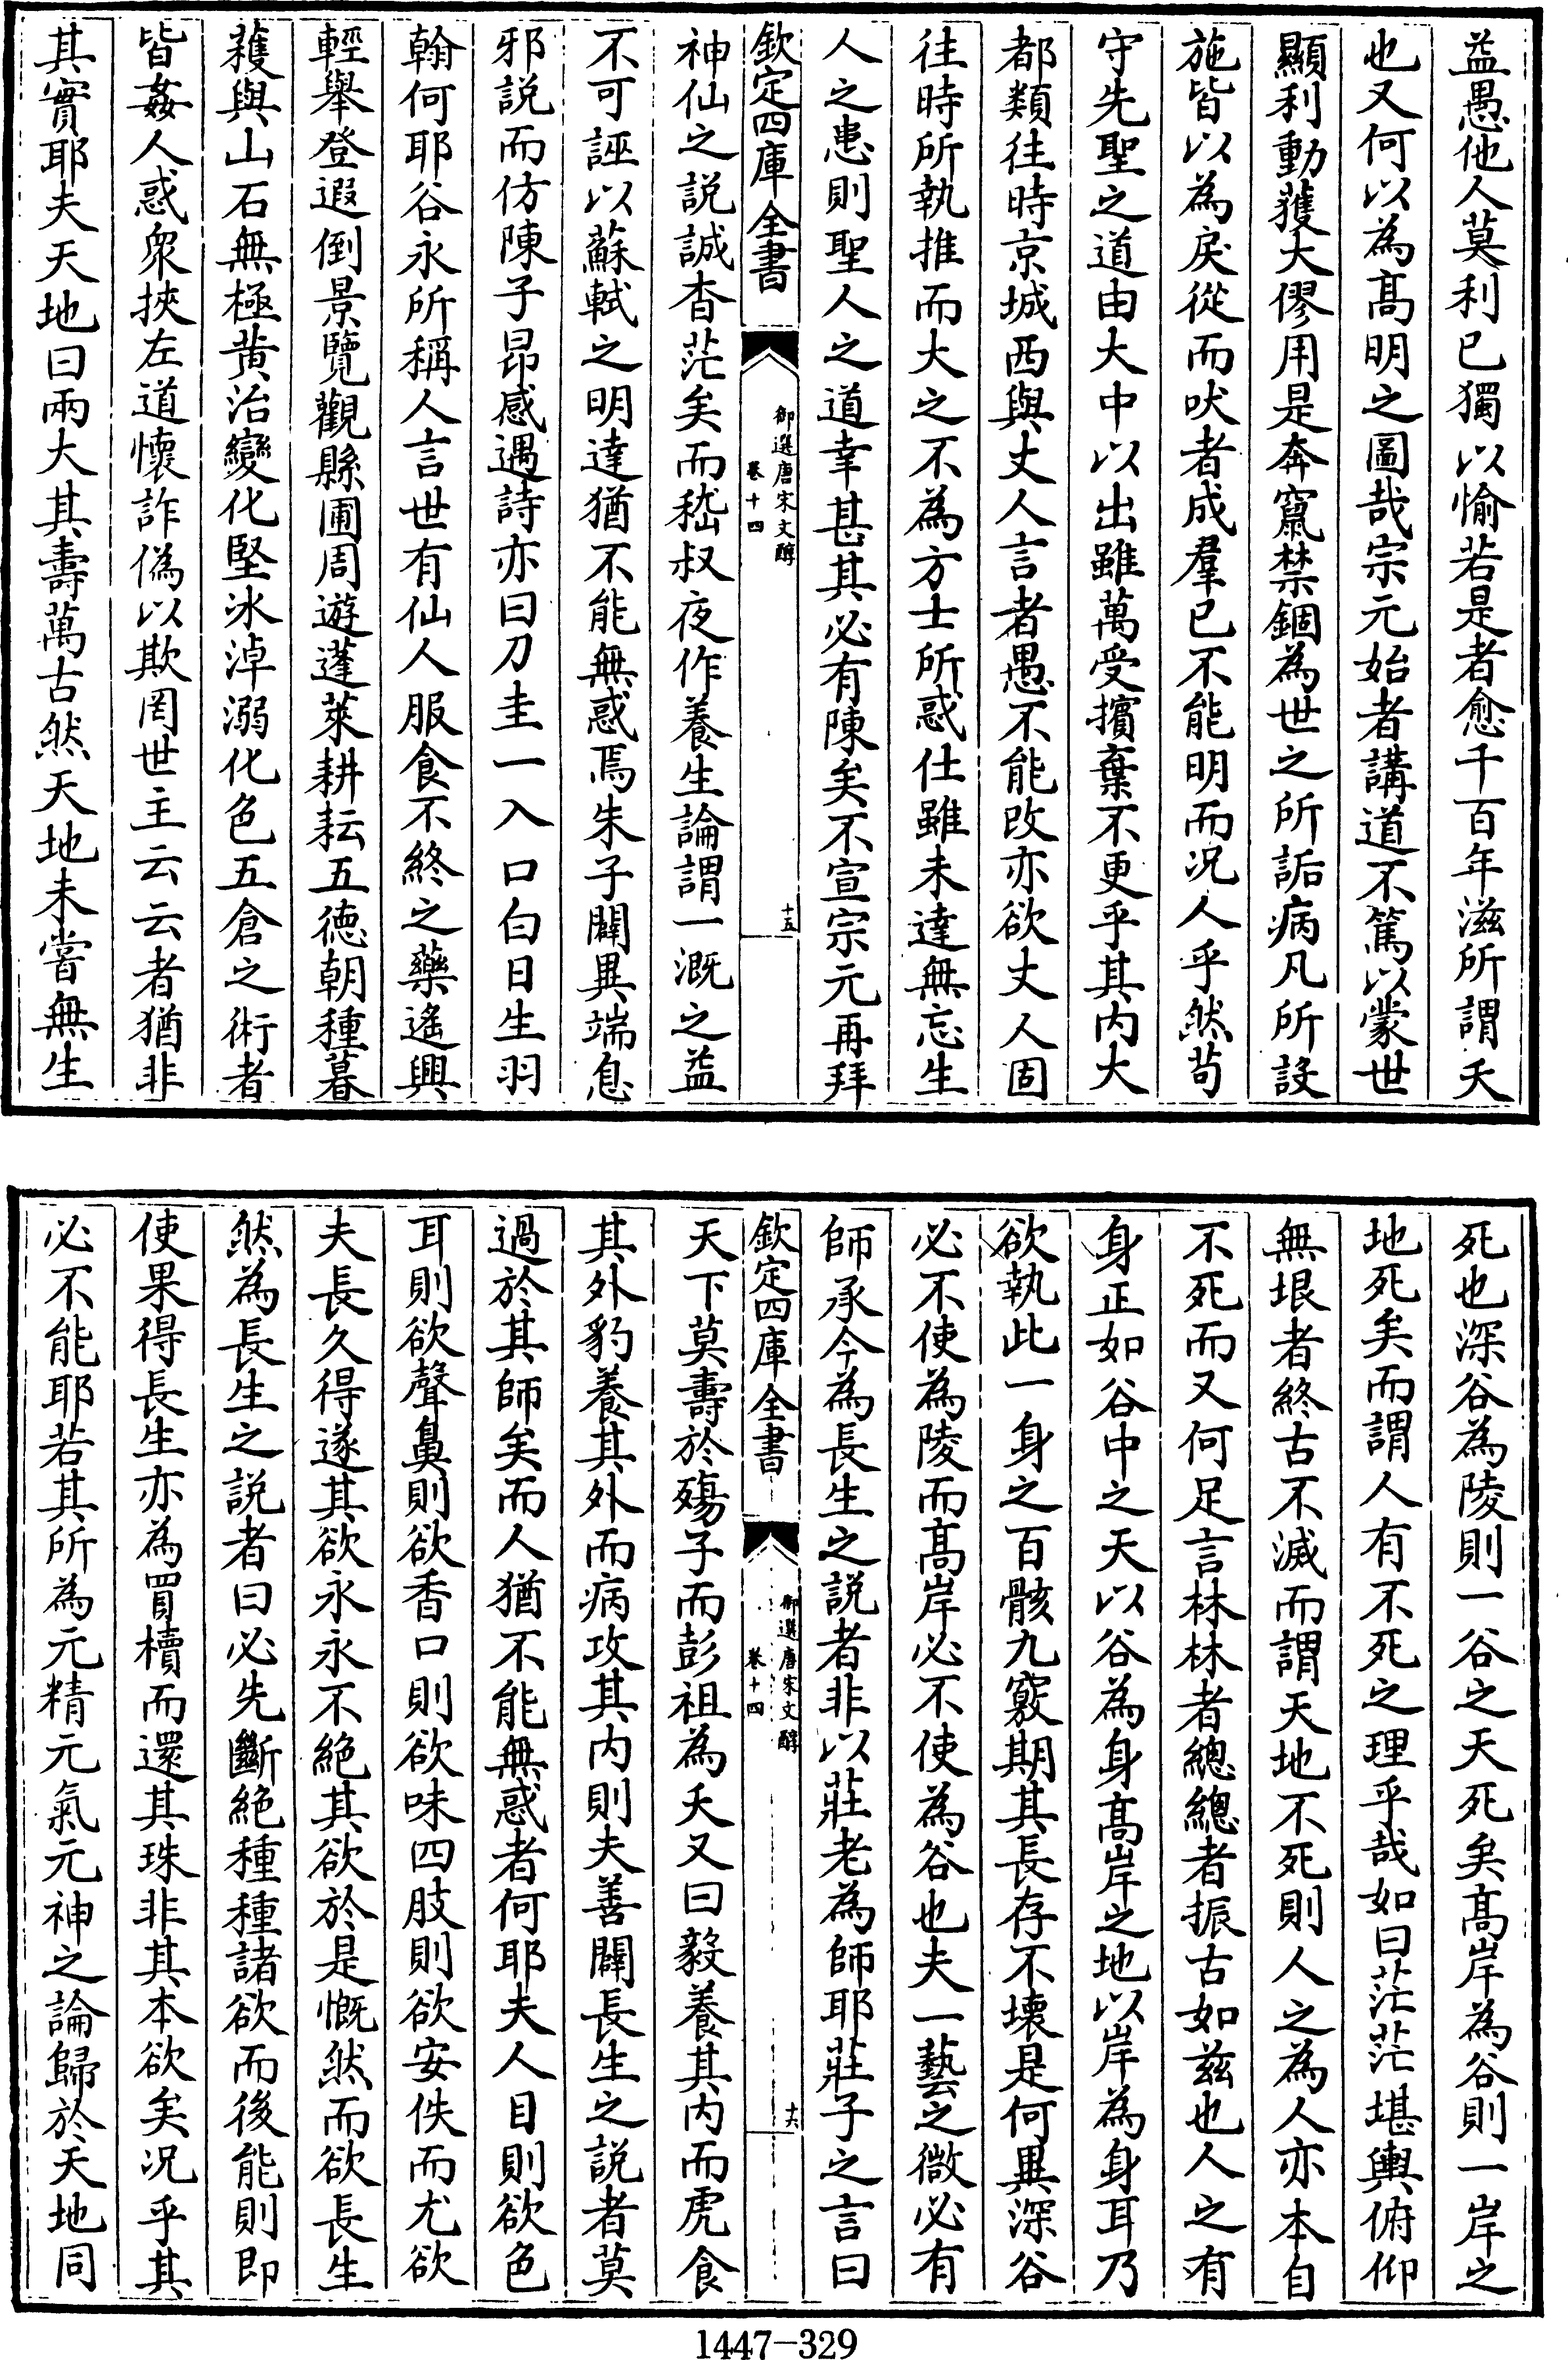 益愚他人莫利己獨以愉若是者愈千百年滋所謂夭
也又何以為髙明之圖哉宗元始者講道不篤以蒙世
顯利動獲大僇用是奔竄禁錮為世之所詬病凡所設
施皆以為戾從而吠者成羣已不能明而况人乎然茍
守先聖之道由大中以出雖萬受擯棄不更乎其内大
都類往時京城西與丈人言者愚不能改亦欲丈人固
往時所執推而大之不為方士所惑仕雖未達無忘生
人之患則聖人之道幸甚其必有陳矣不宣宗元再拜
欽定四庫全書
御選唐宋文醇
卷十四
十五
神仙之説誠杳茫矣而嵇叔夜作養生論謂一溉之益
不可誣以蘇軾之明達猶不能無惑焉朱子闢異端息
邪説而仿陳子昂感遇詩亦曰刀圭一入口白日生羽
翰何耶谷永所稱人言世有仙人服食不終之藥遙興
輕舉登遐倒景覽觀縣圃周遊蓬萊耕耘五德朝種暮
穫與山石無極黄冶變化堅冰淖溺化色五倉之術者
皆姦人惑衆挾左道懷詐偽以欺罔世主云云者猶非
其實耶夫天地曰兩大其壽萬古然天地未嘗無生
死也深谷為陵則一谷之天死矣髙岸為谷則一岸之
地死矣而謂人有不死之理乎哉如曰茫茫堪輿俯仰
無垠者終古不滅而謂天地不死則人之為人亦本自
不死而又何足言林林者總總者振古如兹也人之有
身正如谷中之天以谷為身髙岸之地以岸為身耳乃
欲執此一身之百骸九竅期其長存不壊是何異深谷
必不使為陵而髙岸必不使為谷也夫一藝之微必有
師承今為長生之説者非以莊老為師耶莊子之言曰
欽定四庫全書
御選唐宋文醇
卷十四
十六
天下莫壽於殤子而彭祖為夭又曰毅養其内而虎食
其外豹養其外而病攻其内則夫善闢長生之説者莫
過於其師矣而人猶不能無惑者何耶夫人目則欲色
耳則欲聲鼻則欲香口則欲味四肢則欲安佚而尤欲
夫長久得遂其欲永永不絶其欲於是慨然而欲長生
然為長生之説者曰必先斷絶種種諸欲而後能則即
使果得長生亦為買櫝而還其珠非其本欲矣况乎其
必不能耶若其所為元精元氣元神之論歸於天地同
1447-329